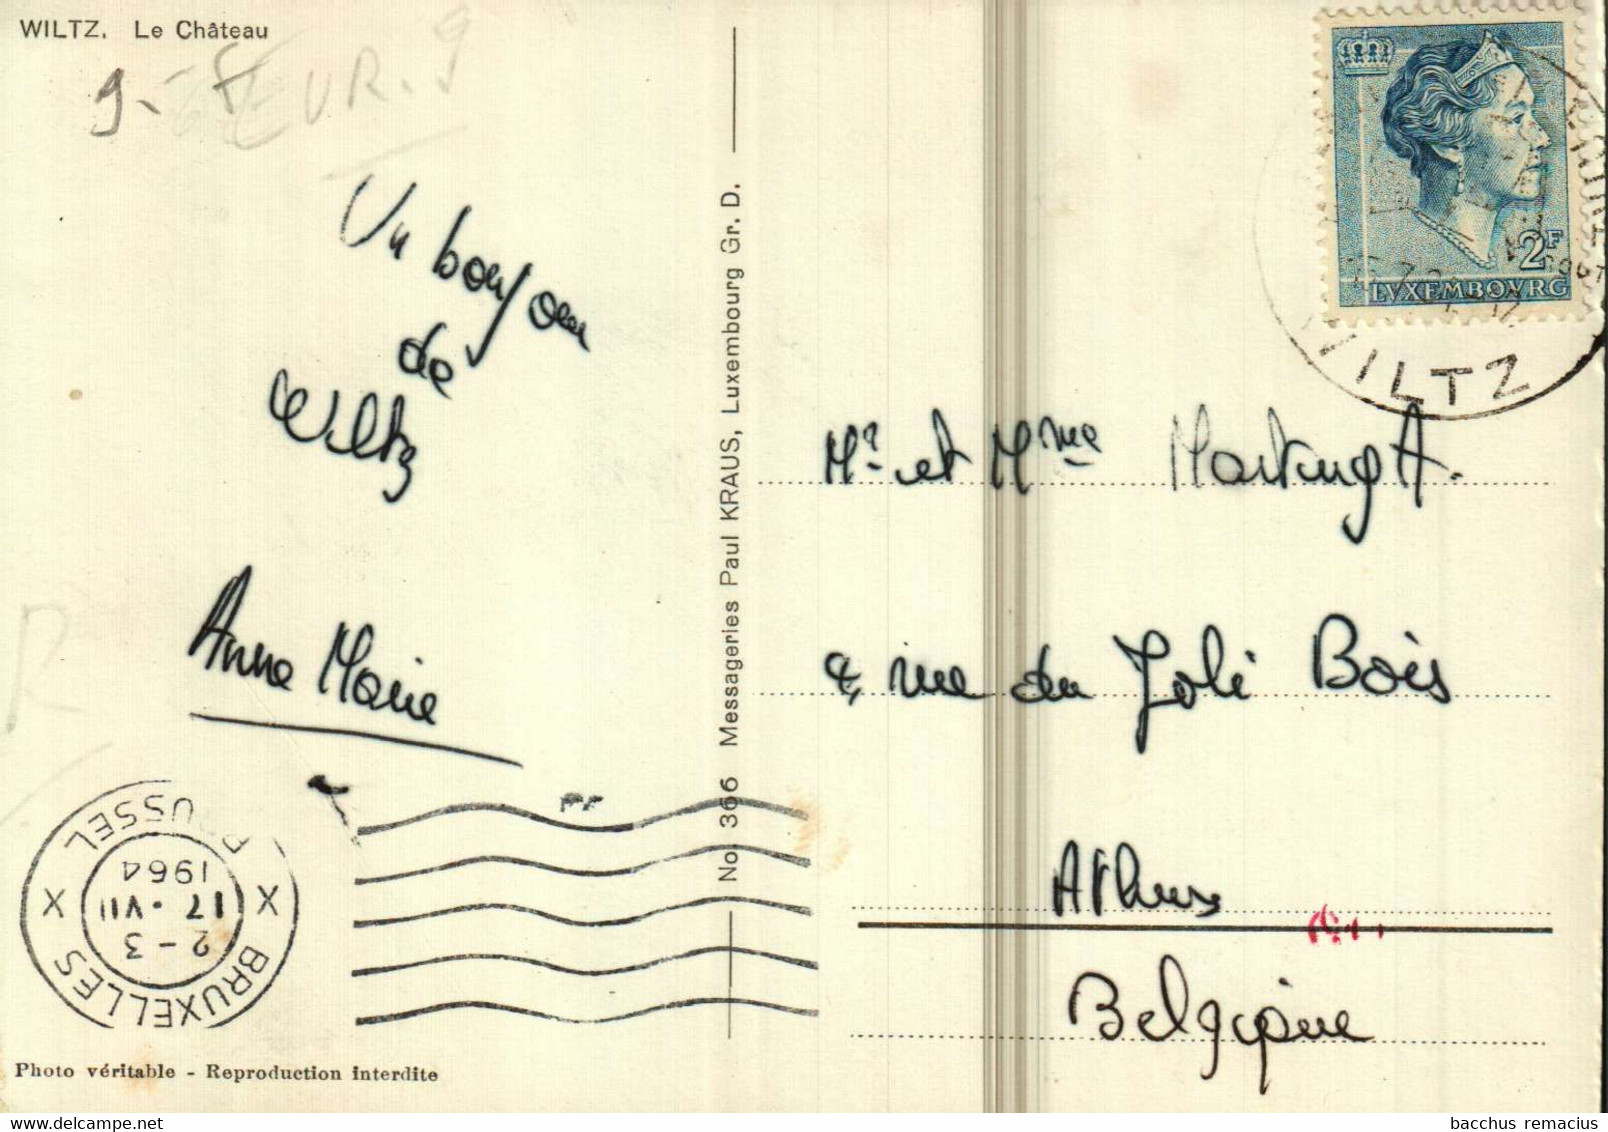 WILTZ. Le Château
EUR. 9
Un bonjour
de
Wiltz
Anne Marie
BRUXELLES X BRUSSEL X
2-3
17.VII
1964
Photo véritable - Reproduction interdite
No. 366 Messageries Paul KRAUS, Luxembourg Gr. D.
2F
LVXEMBOVRG
WILTZ
Mr. et Mme A.
rue du Joli Bois
Athus
Belgique
bacchus remacius